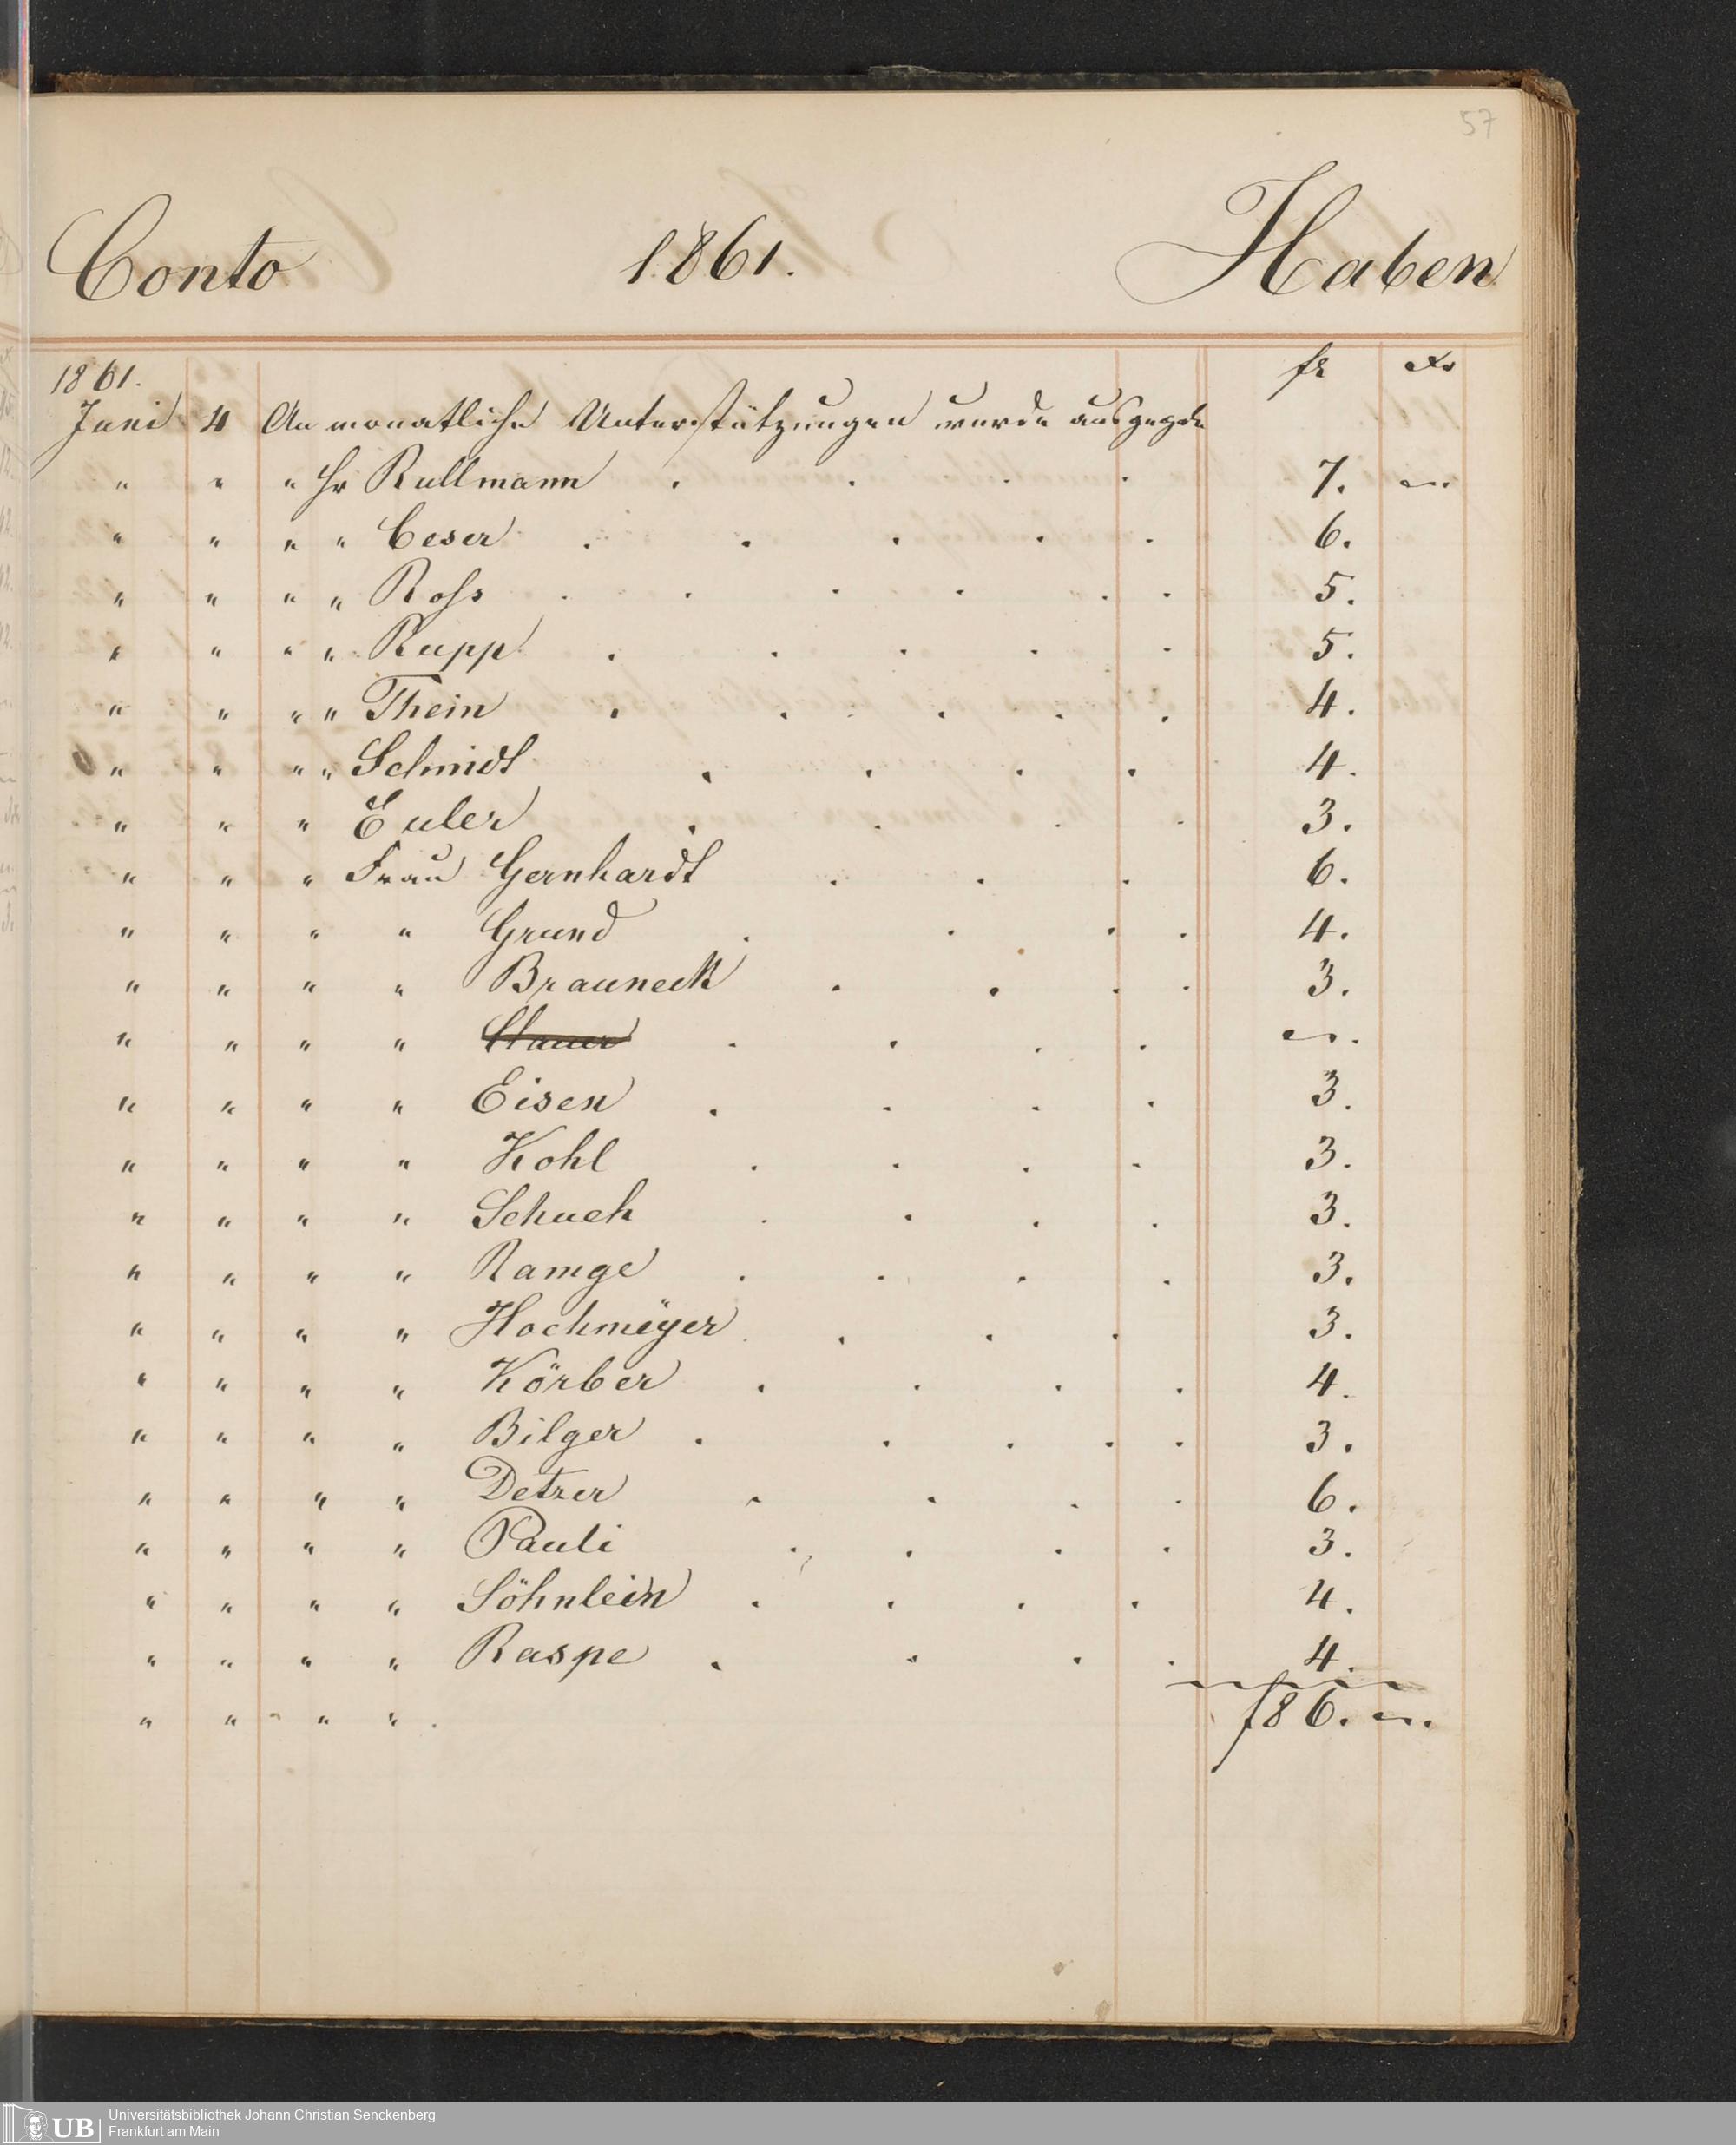 57
Conto 1861. Haben
1861. fl xr
Juni 4 An monatliche Unterstützungen wurde ausgegeb
" " " Hr Rullmann . . . . 7. –.
" " " " Ceser . . . . . 6.
" " " " Roſs . . . . . . 5.
" " " " Rupp . . . . . 5.
" " " " Thein . . . . . 4.
" " " " Schmidt . . . . 4.
" " " Euler . . . . 3.
" " " Frau Gernhardt . . . 6.
" " " " Grund . . . . 4.
" " " " Brauneck . . . . 3.
" " " " . . . . –.
" " " " Eisen . . . . 3.
" " " " Kohl . . . . 3.
" " " " Schuch . . . . 3.
" " " " Ramge . . . . 3.
" " " " Hochmeÿer . . . 3.
" " " " Körber . . . . 4.
" " " " Bilger . . . . . 3.
" " " " Detzer . . . . 6.
" " " " Pauli . . . . 3.
" " " " Söhnlein . . . . 4.
" " " " Raspe . . . . 4.
" " " " . f 86. –.
UB Universitätsbibliothek Johann Christian Senckenberg
Frankfurt am Main